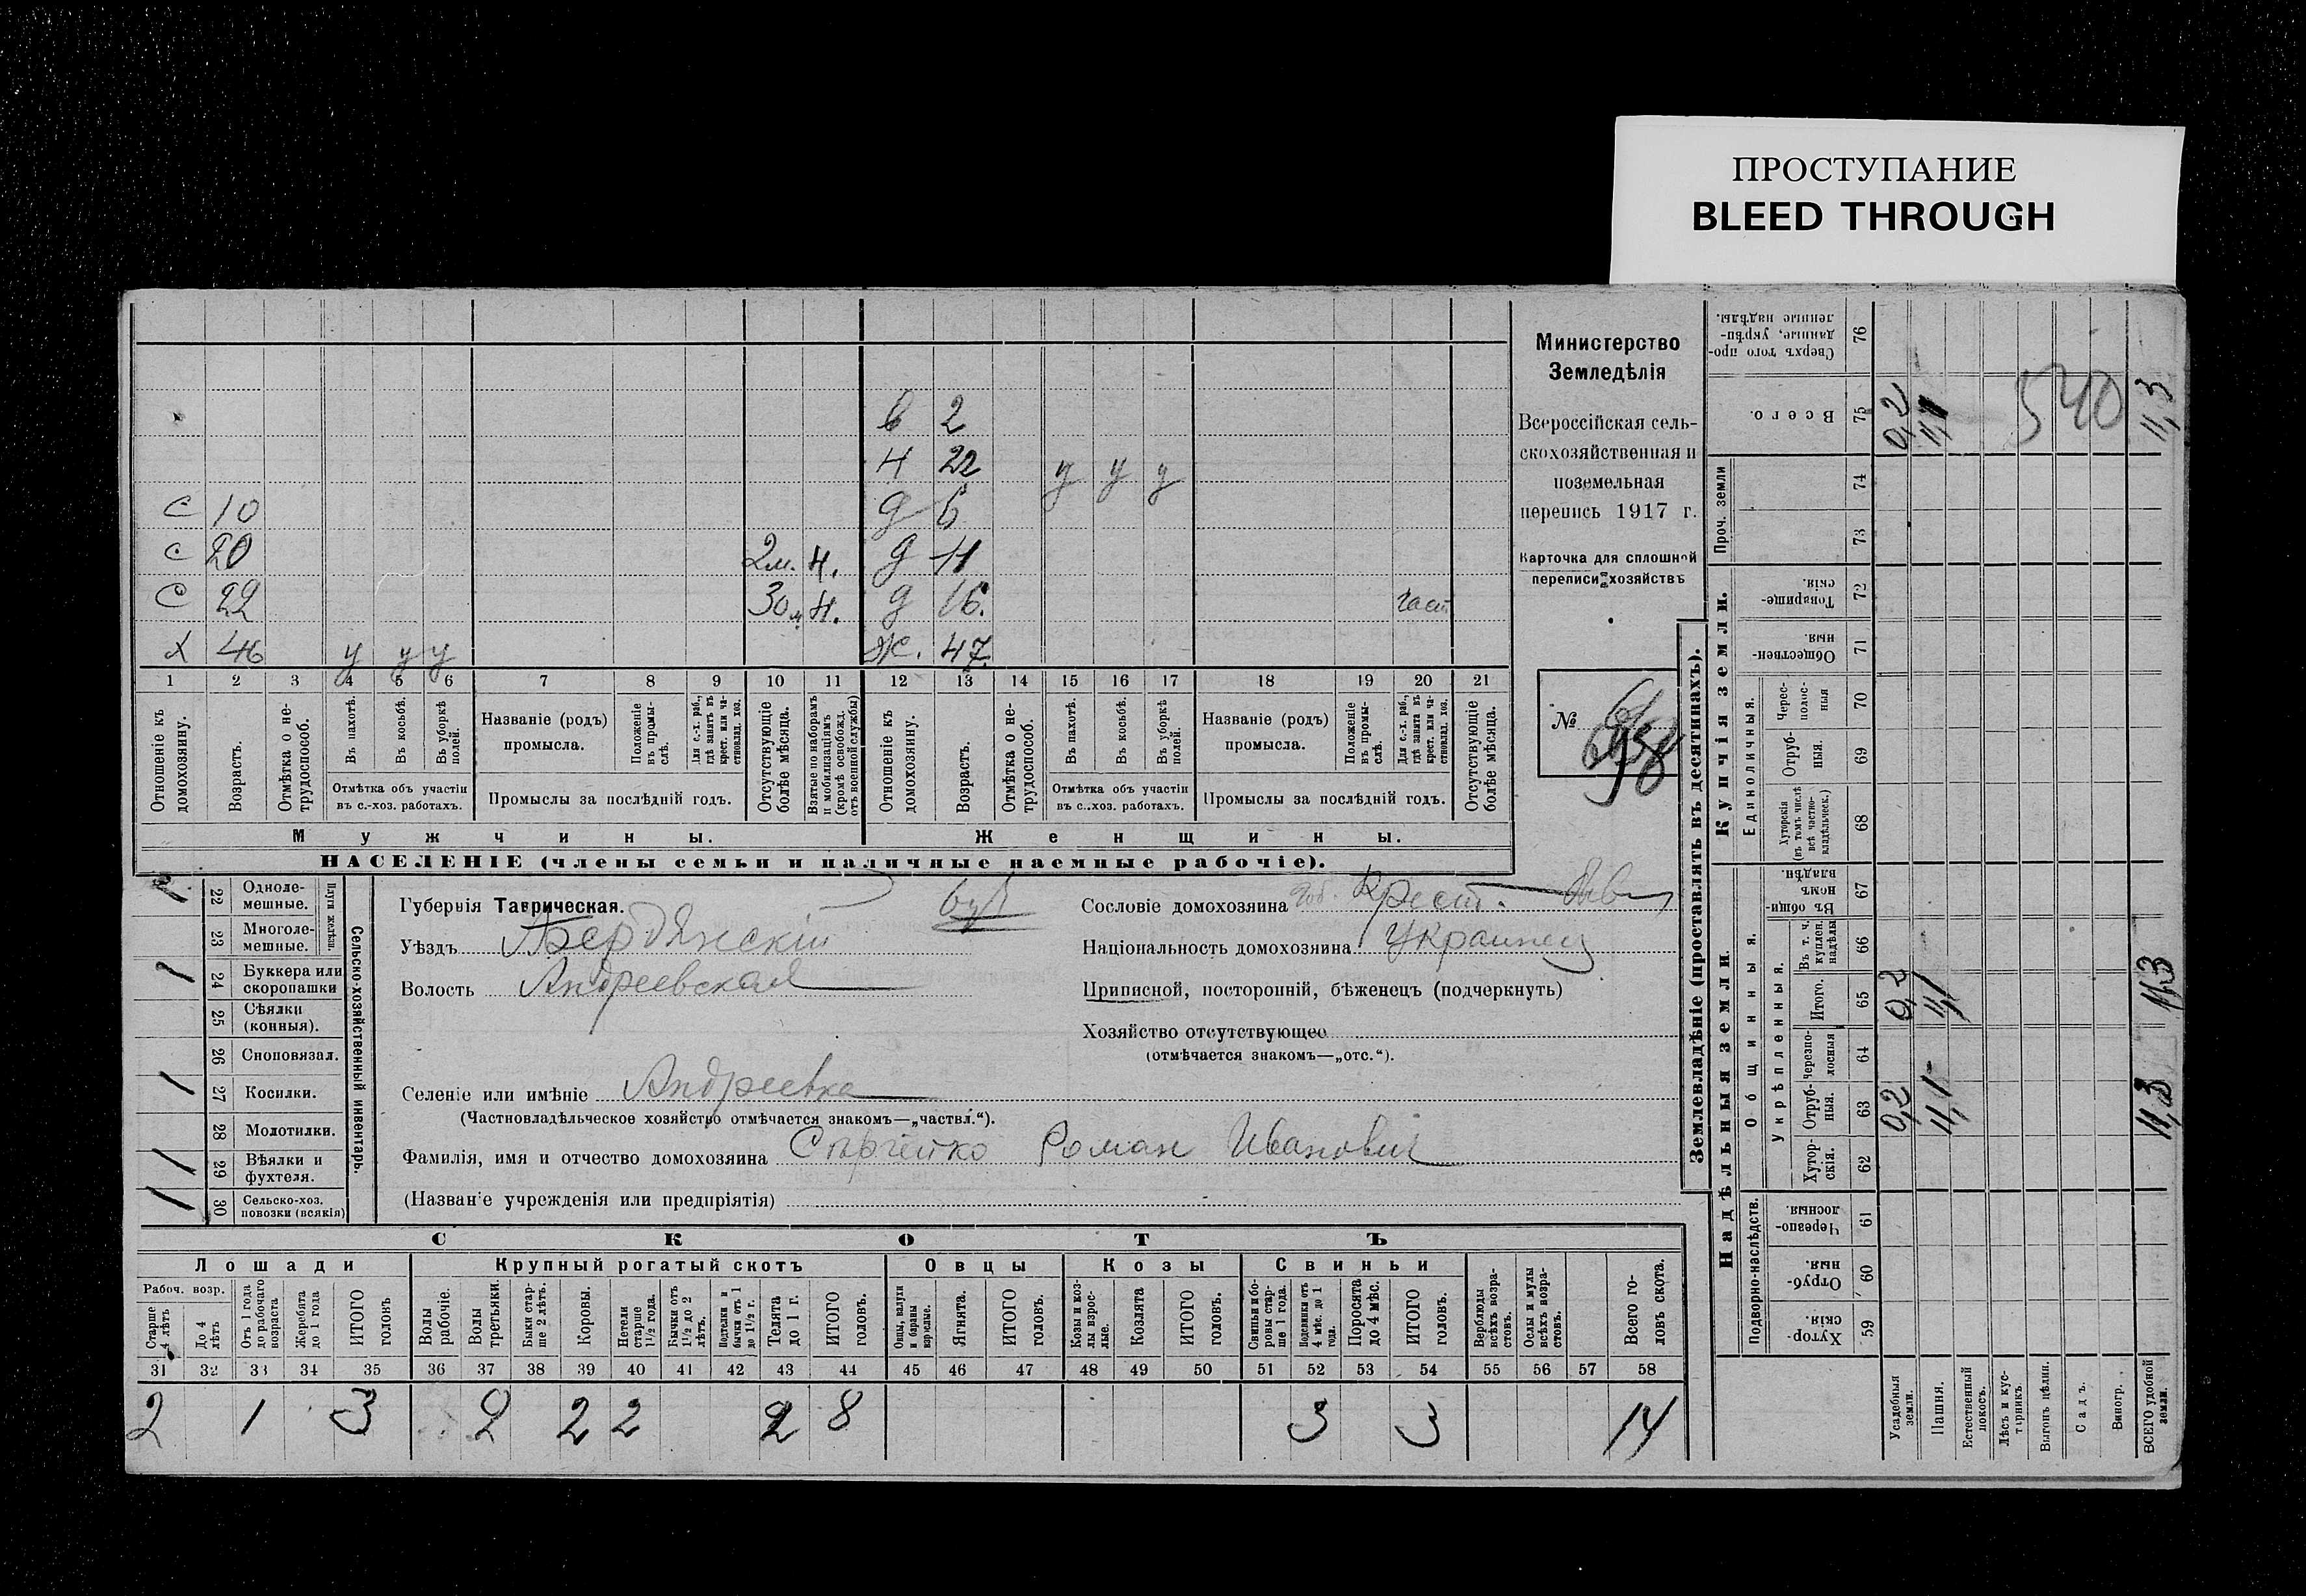 ПРОСТУПАНИЕ
BLEED THROUGH
в 2
н 22 у у у
с 10 д 6
с 20 2 м. н. д 11
с 22 30 м н. д 16. част
х 46 у у у ж. 47
1 2 3 4 5 6 7 8 9 10 11 12 13 14 15 16 17 18 19 20 21
Отношеніе къ домохозяину.
Возрастъ.
Отмѣтка о нетрудоспособ.
Въ пахотѣ.
Въ косьбѣ.
Въ уборкѣ полей.
Отмѣтка объ участіи
въ с.-хоз. работахъ.
Названіе (родъ)
промысла.
Положеніе въ промыслѣ.
Для с.-х. раб., гдѣ занятъ въ крест. или частновлад. хоз.
Промыслы за послѣдній годъ.
Отсутствующіе болѣе мѣсяца.
Взятые по наборамъ и мобилизаціямъ (кромѣ освобожд. отъ военной службы)
Отношеніе къ домохозяину.
Возрастъ.
Отмѣтка о нетрудоспособ.
Въ пахотѣ.
Въ косьбѣ.
Въ уборкѣ полей.
Отмѣтка объ участіи
въ с..хоз. работахъ.
Названіе (родъ)
промысла.
Положеніе въ промыслѣ.
Для с.-х. раб., гдѣ занята въ крест. или частновлад. хоз.
Промыслы за послѣдній годъ.
Отсутствующіе болѣе мѣсяца.
Мужчины.
Женщины.
НАСЕЛЕНІЕ (члены семьи и наличные наемные рабочіе).
Министерство
Земледѣлія
Всероссійская сель-
скохозяйственная и
поземельная
перепись 1917 г.
Карточка для сплошной
переписи хозяйствъ
№
1 22 Одноле-
мешные.
23 Многоле-
мешные.
Плуги желѣзн.
1 24 Буккера или
скоропашки
25 Сѣялки
(конныя).
26 Сноповязал.
1 27 Косилки.
28 Молотилки.
1 29 Вѣялки и
фухтеля.
1 30 Сельско-хоз.
повозки (всякія)
Сельско-хозяйственный инвентарь.
Губернія Таврическая.
Уѣздъ Бердянскій
Волость Андреевская
Селеніе или имѣніе Андреевка
(Частновладѣльческое хозяйство отмѣчается знакомъ—„частвл.“).
Фамилія, имя и отчество домохозяина Роман Иванович
(Названіе учрежденія или предпріятія)
Сословіе домохозяина Крест.
Національность домохозяина Украинец
Приписной, посторонній, бѣженецъ (подчеркнуть)
Хозяйство отсутствующее
(отмѣчается знакомъ—„отс.“).
СКОТЪ
Лошади
Крупный рогатый скотъ
Овцы
Козы
Свиньи
Рабоч. возр.
Старше 4 лѣтъ
До 4 лѣтъ
Отъ 1 года до рабочаго возраста
Жеребята до 1 года
ИТОГО головъ
Волы рабочіе.
Волы третьяки.
Быки старше 2 лѣтъ.
Коровы.
Нетели старше 1½ года.
Бычки отъ 1½ до 2 лѣтъ.
Подтелки и бычки отъ 1 до 1½ г.
Телята до 1 г.
ИТОГО головъ.
Овцы, валухи и бараны взрослые.
Ягнята.
ИТОГО головъ.
Козы и козлы взрослые.
Козлята
ИТОГО головъ.
Свиньи и боровы старше 1 года.
Подсвинки отъ 4 мѣс. до 1 года.
Поросята до 4 мѣс.
ИТОГО головъ.
Верблюды всѣхъ возрастовъ.
Ослы и мулы всѣхъ возрастовъ.
Всего головъ скота.
31 32 33 34 35 36 37 38 39 40 41 42 43 44 45 46 47 48 49 50 51 52 53 54 55 56 57 58
2 1 3 2 2 2 2 8 3 3 14
Землевладѣніе (проставлять въ десятинахъ).
Надѣльныя земли.
Купчія земли.
Проч. земли
Подворно-наслѣдств.
Общинныя.
Укрѣпленныя.
Единоличныя.
Сверхъ того проданные, укрѣпленные надѣлы. 76
Всего. 75 0,2 11,1 540 11,3
74
73
Товарищескія. 72
Общественныя. 71
Черезполосныя 70
Отрубныя. 69
Хуторскія (въ томъ числѣ всѣ частновладѣльческ.) 68
Въ общинномъ владѣн. 67
Въ т. ч. куплен. надѣлы 66
Итого. 65 0,2 11,1 11,3
Черезполосныя 64
Отрубныя. 63 0,2 11,1 11,3
Хуторскія. 62
Черезполосныя. 61
Отрубныя. 60
Хуторскія. 59
Усадебныя земли.
Пашня.
Естественный покосъ.
Лѣсъ и кустарникъ
Выгонъ цѣлин.
Садъ.
Виногр.
ВСЕГО удобной земли.